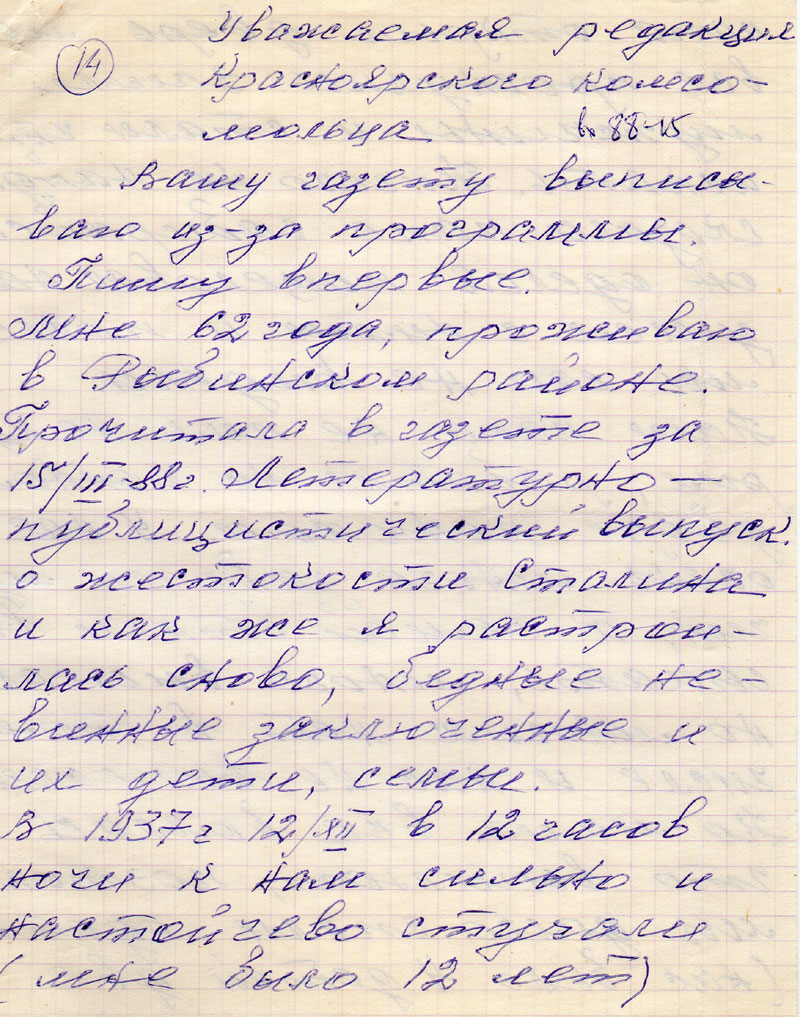 14
Уважаемая редакция
Красноярского комсо-
мольца
вх 88-15
Вашу газету выписы-
ваю из-за программы.
Пишу впервые.
Мне 62 года, проживаю
в Рыбинском районе.
Прочитала в газете за
15/III-88г. Летературно-
публицистический выпуск.
о жестокости Сталина
и как же я растрои-
лась сново, бедные не-
винные заключенные и
их дети, семьи.
В 1937г 12/XII в 12 часов
ночи к нам сильно и
настойчево стучали
(мне было 12 лет)